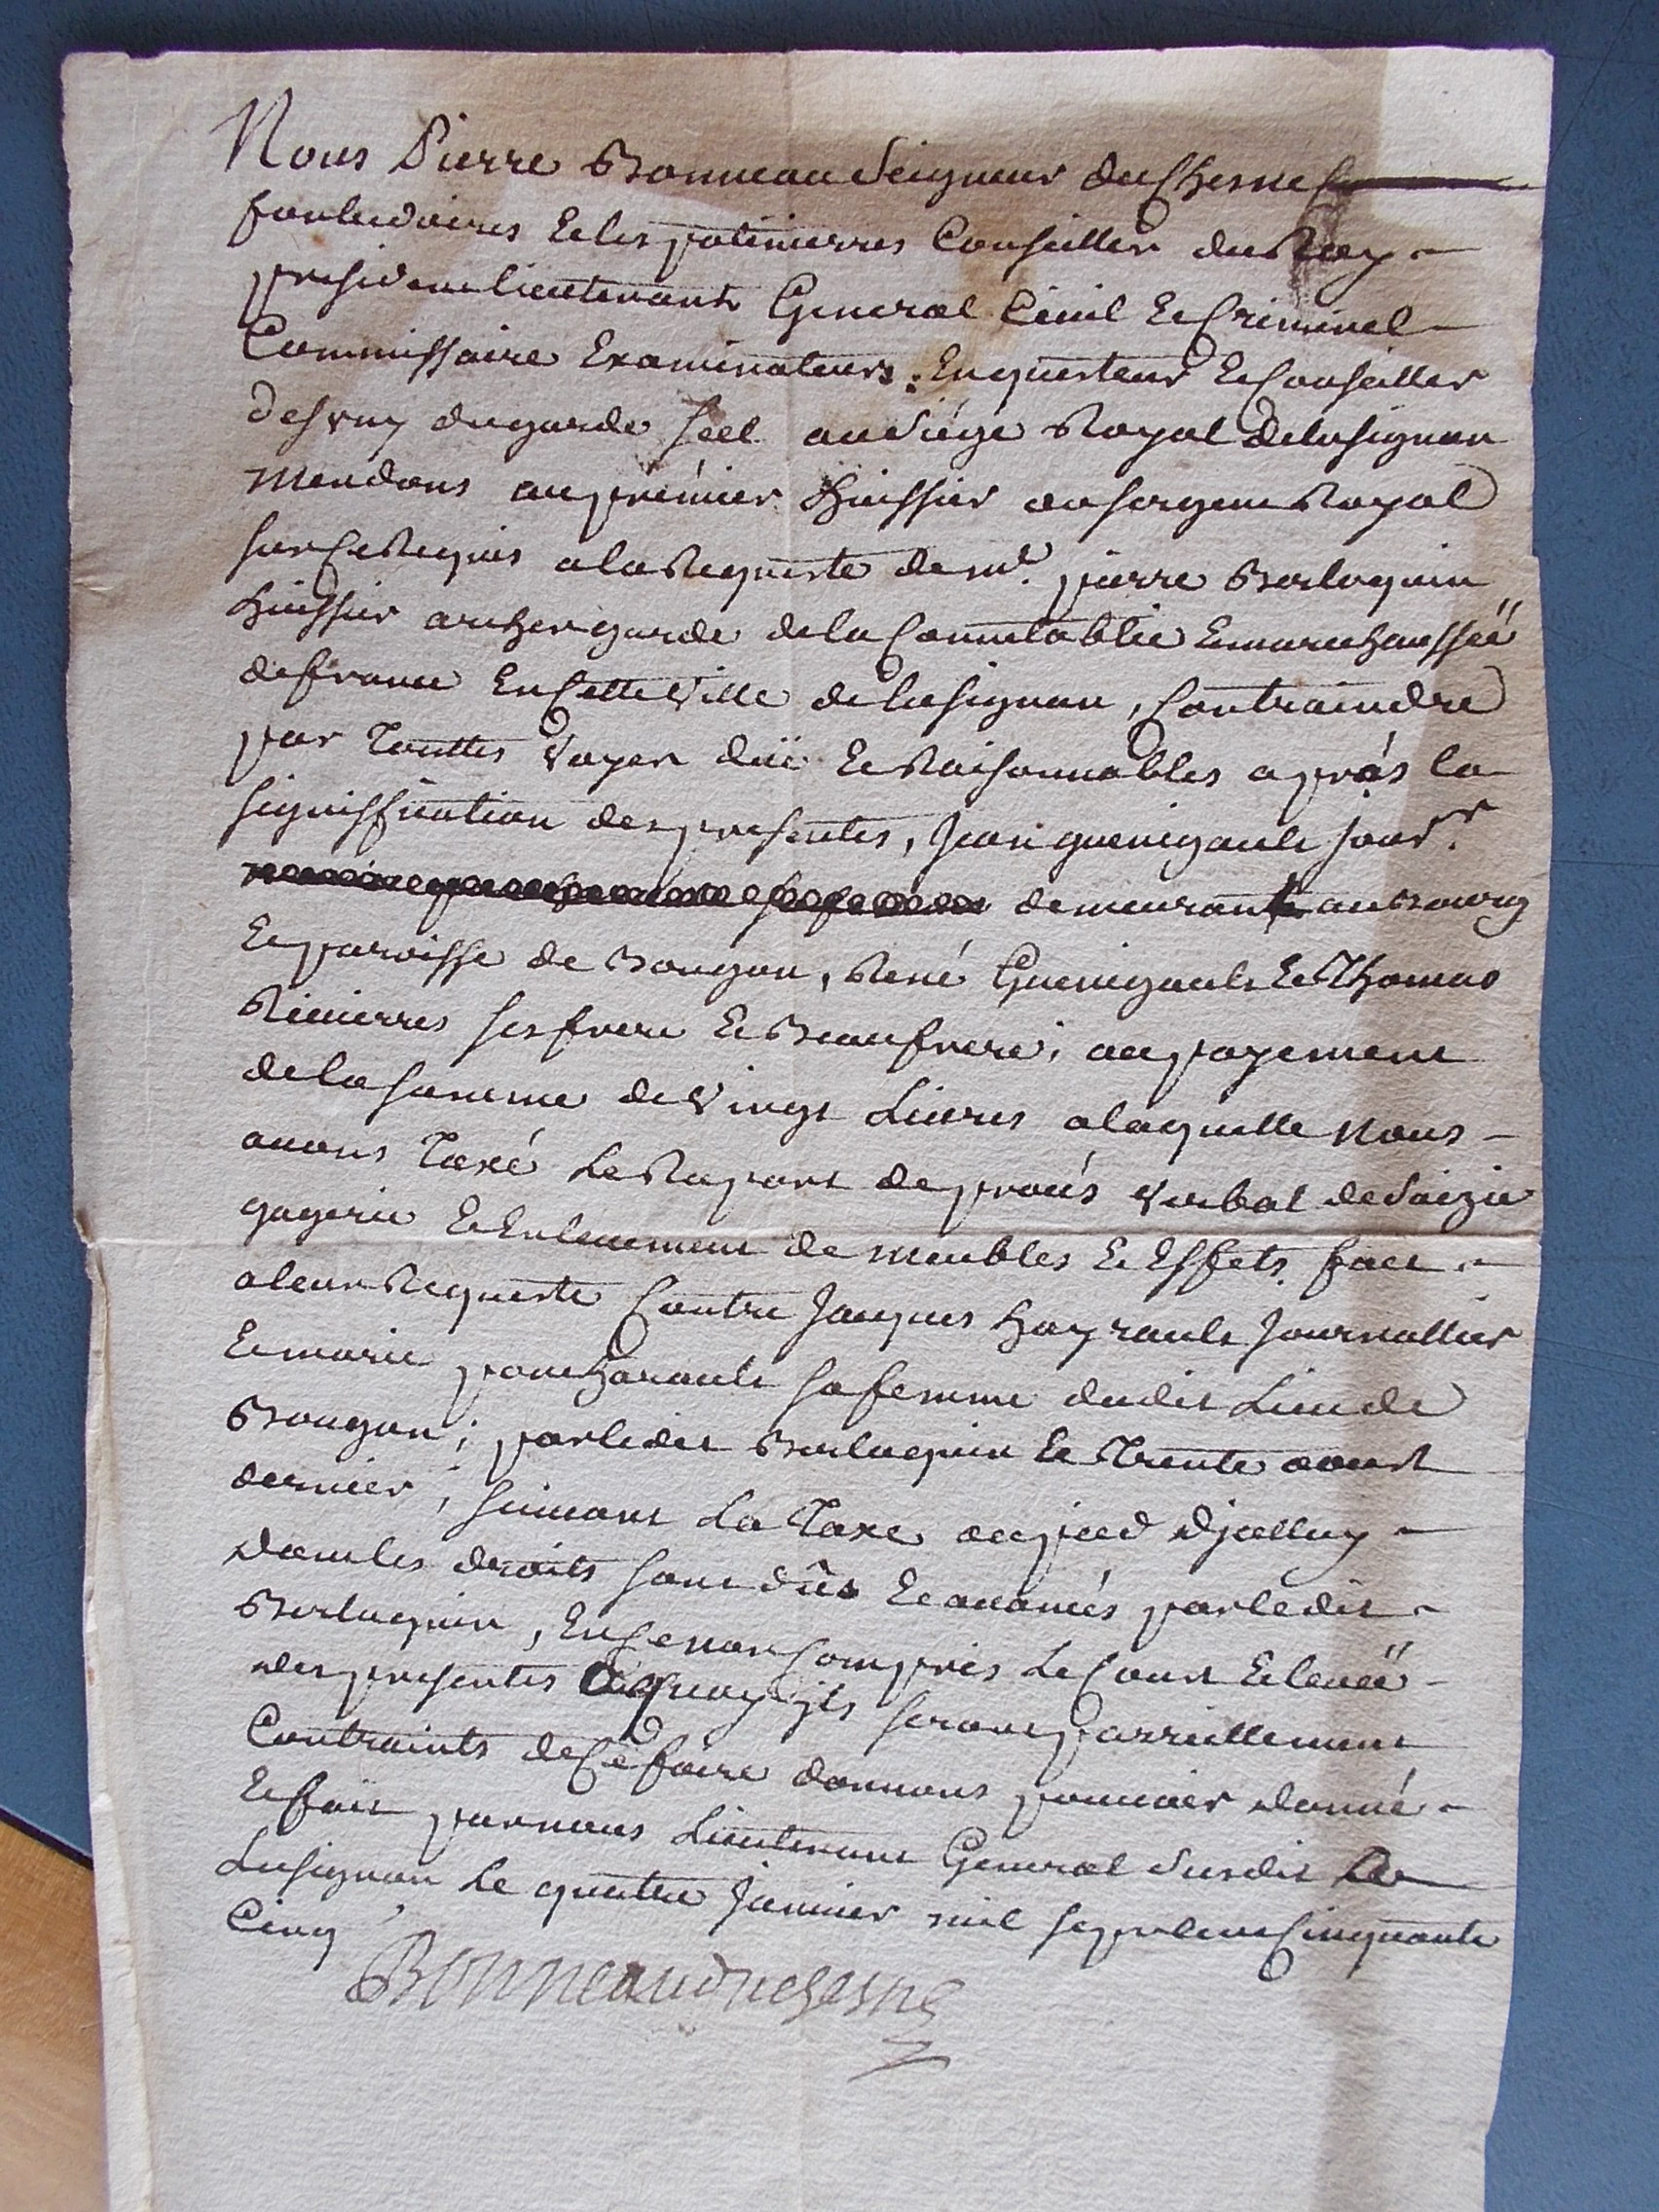 Nous Pierre Bonneau Seigneur du Chesne
Et les potinierres Conseiller du Roy
president lieutenant General Civil Et Criminel
Commissaire Examinateur Enquesteur Et Conseiller
du garde scel au Siége Royal de lusignan
Mandons au prémier Huissier ou sergent Royal
sur Ce Requis a la Requeste de me. pierre Berloquin
Huissier archer garde de la Connetablie Et marechaussée
de france En Cette Ville de lusignan, Contraindre
par Touttes Voyes düe Et Raisonnables aprás la
signiffication des presentes, Jean guenigault jour.r
demeurant au Bourg
Et paroisse de Bougon, René Guenigault Et Thomas
Rimierres ses frere Et Beaufrere, au payement
de la somme de Vingt Livres a laquelle Nous
avons Taxé Le Raport de procés Verbal de Saizie
gagerie Et Enlevement de meubles Et Effets fait
a leur Requeste Contre Jacques Hayrault Journallier
Et marie poucharault sa femme dudit Lieu de
Bougon; par ledit Berloquin Le Trente aoust
dernier, suivant La Taxe au pied d'jcelluy
dont les droits sont dûs Et avancés par ledit
Berloquin, En Ce non Compris Le Coust Et levée
des presentes A quoy jls seront parreillement
Contraints de Ce faire donnons pouvoir donné
Et fait par nous Lieutenant General Susdit
Lusignan Le quatre Janvier mil sept Cent Cinquante
Cinq
Bonneau duchesne